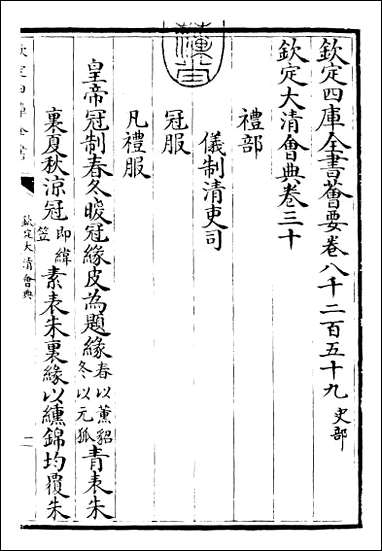 欽定四庫全書薈要卷八千二百五十九 史部
欽定大清會典卷三十
禮部
儀制清吏司
冠服
凡禮服
皇帝冠制春冬暖冠緣皮為題緣春以薰貂冬以元狐青表朱
裏夏秋涼冠即緯笠素表朱裏緣以纁錦均覆朱
欽定大清會典